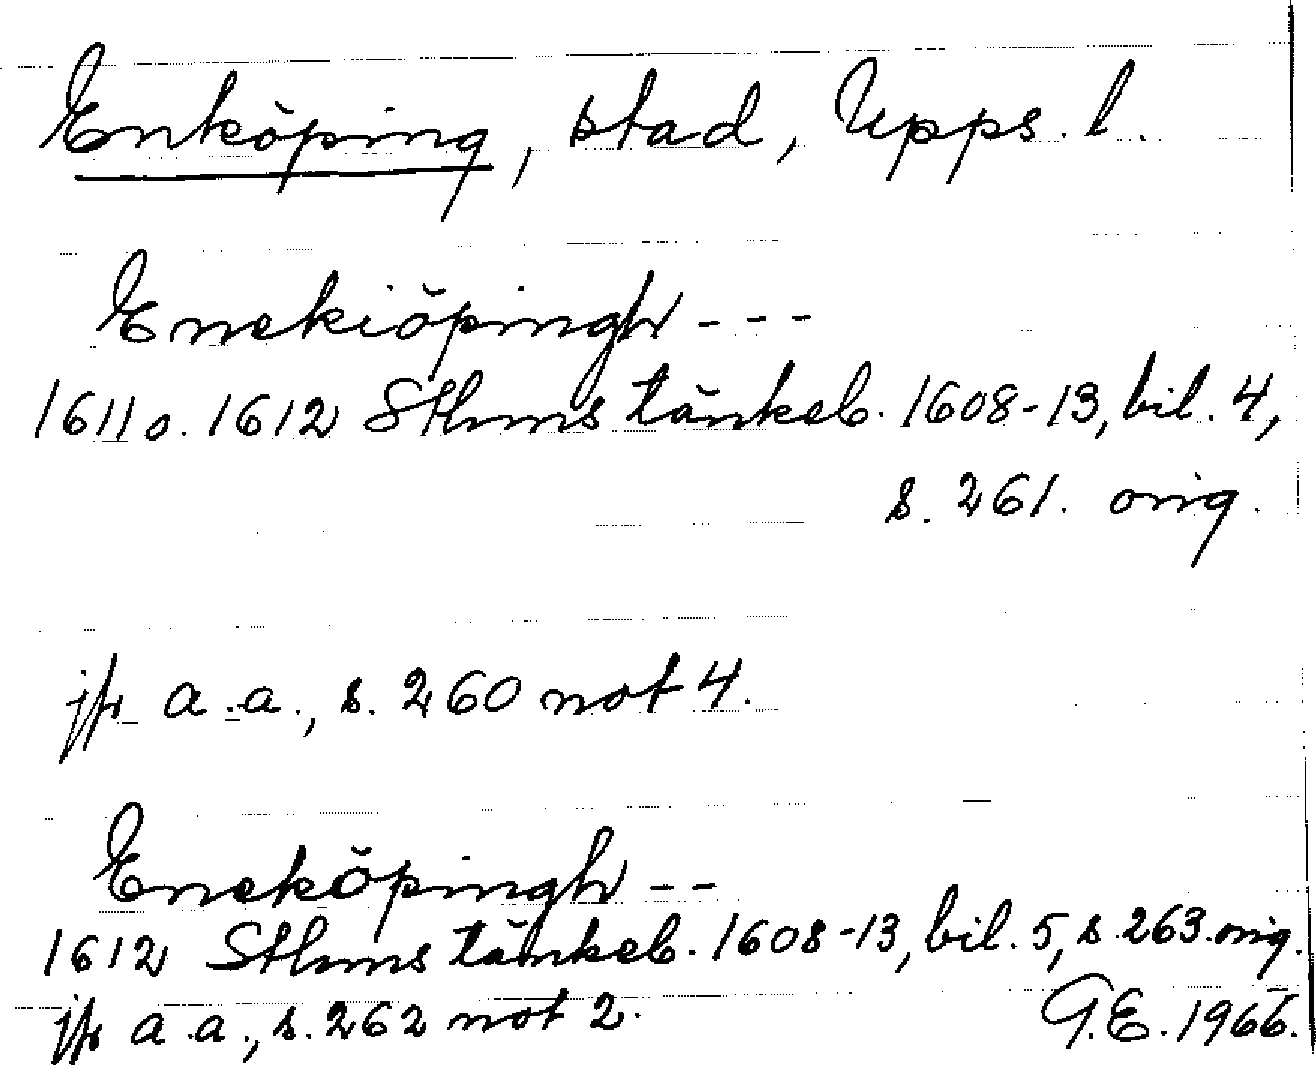 Enköping, stad, Upps. l.
Enekiöpingh ---
1611 o. 1612 Sthms tänkeb. 1608-13, bil. 4,
s. 261. orig.
jfr a.a., s. 260 not 4.
Eneköpingh --
1612 Sthms tänkeb. 1608-13, bil. 5, s. 263. orig.
jfr a.a., s. 262 not 2.
G.E. 1966.